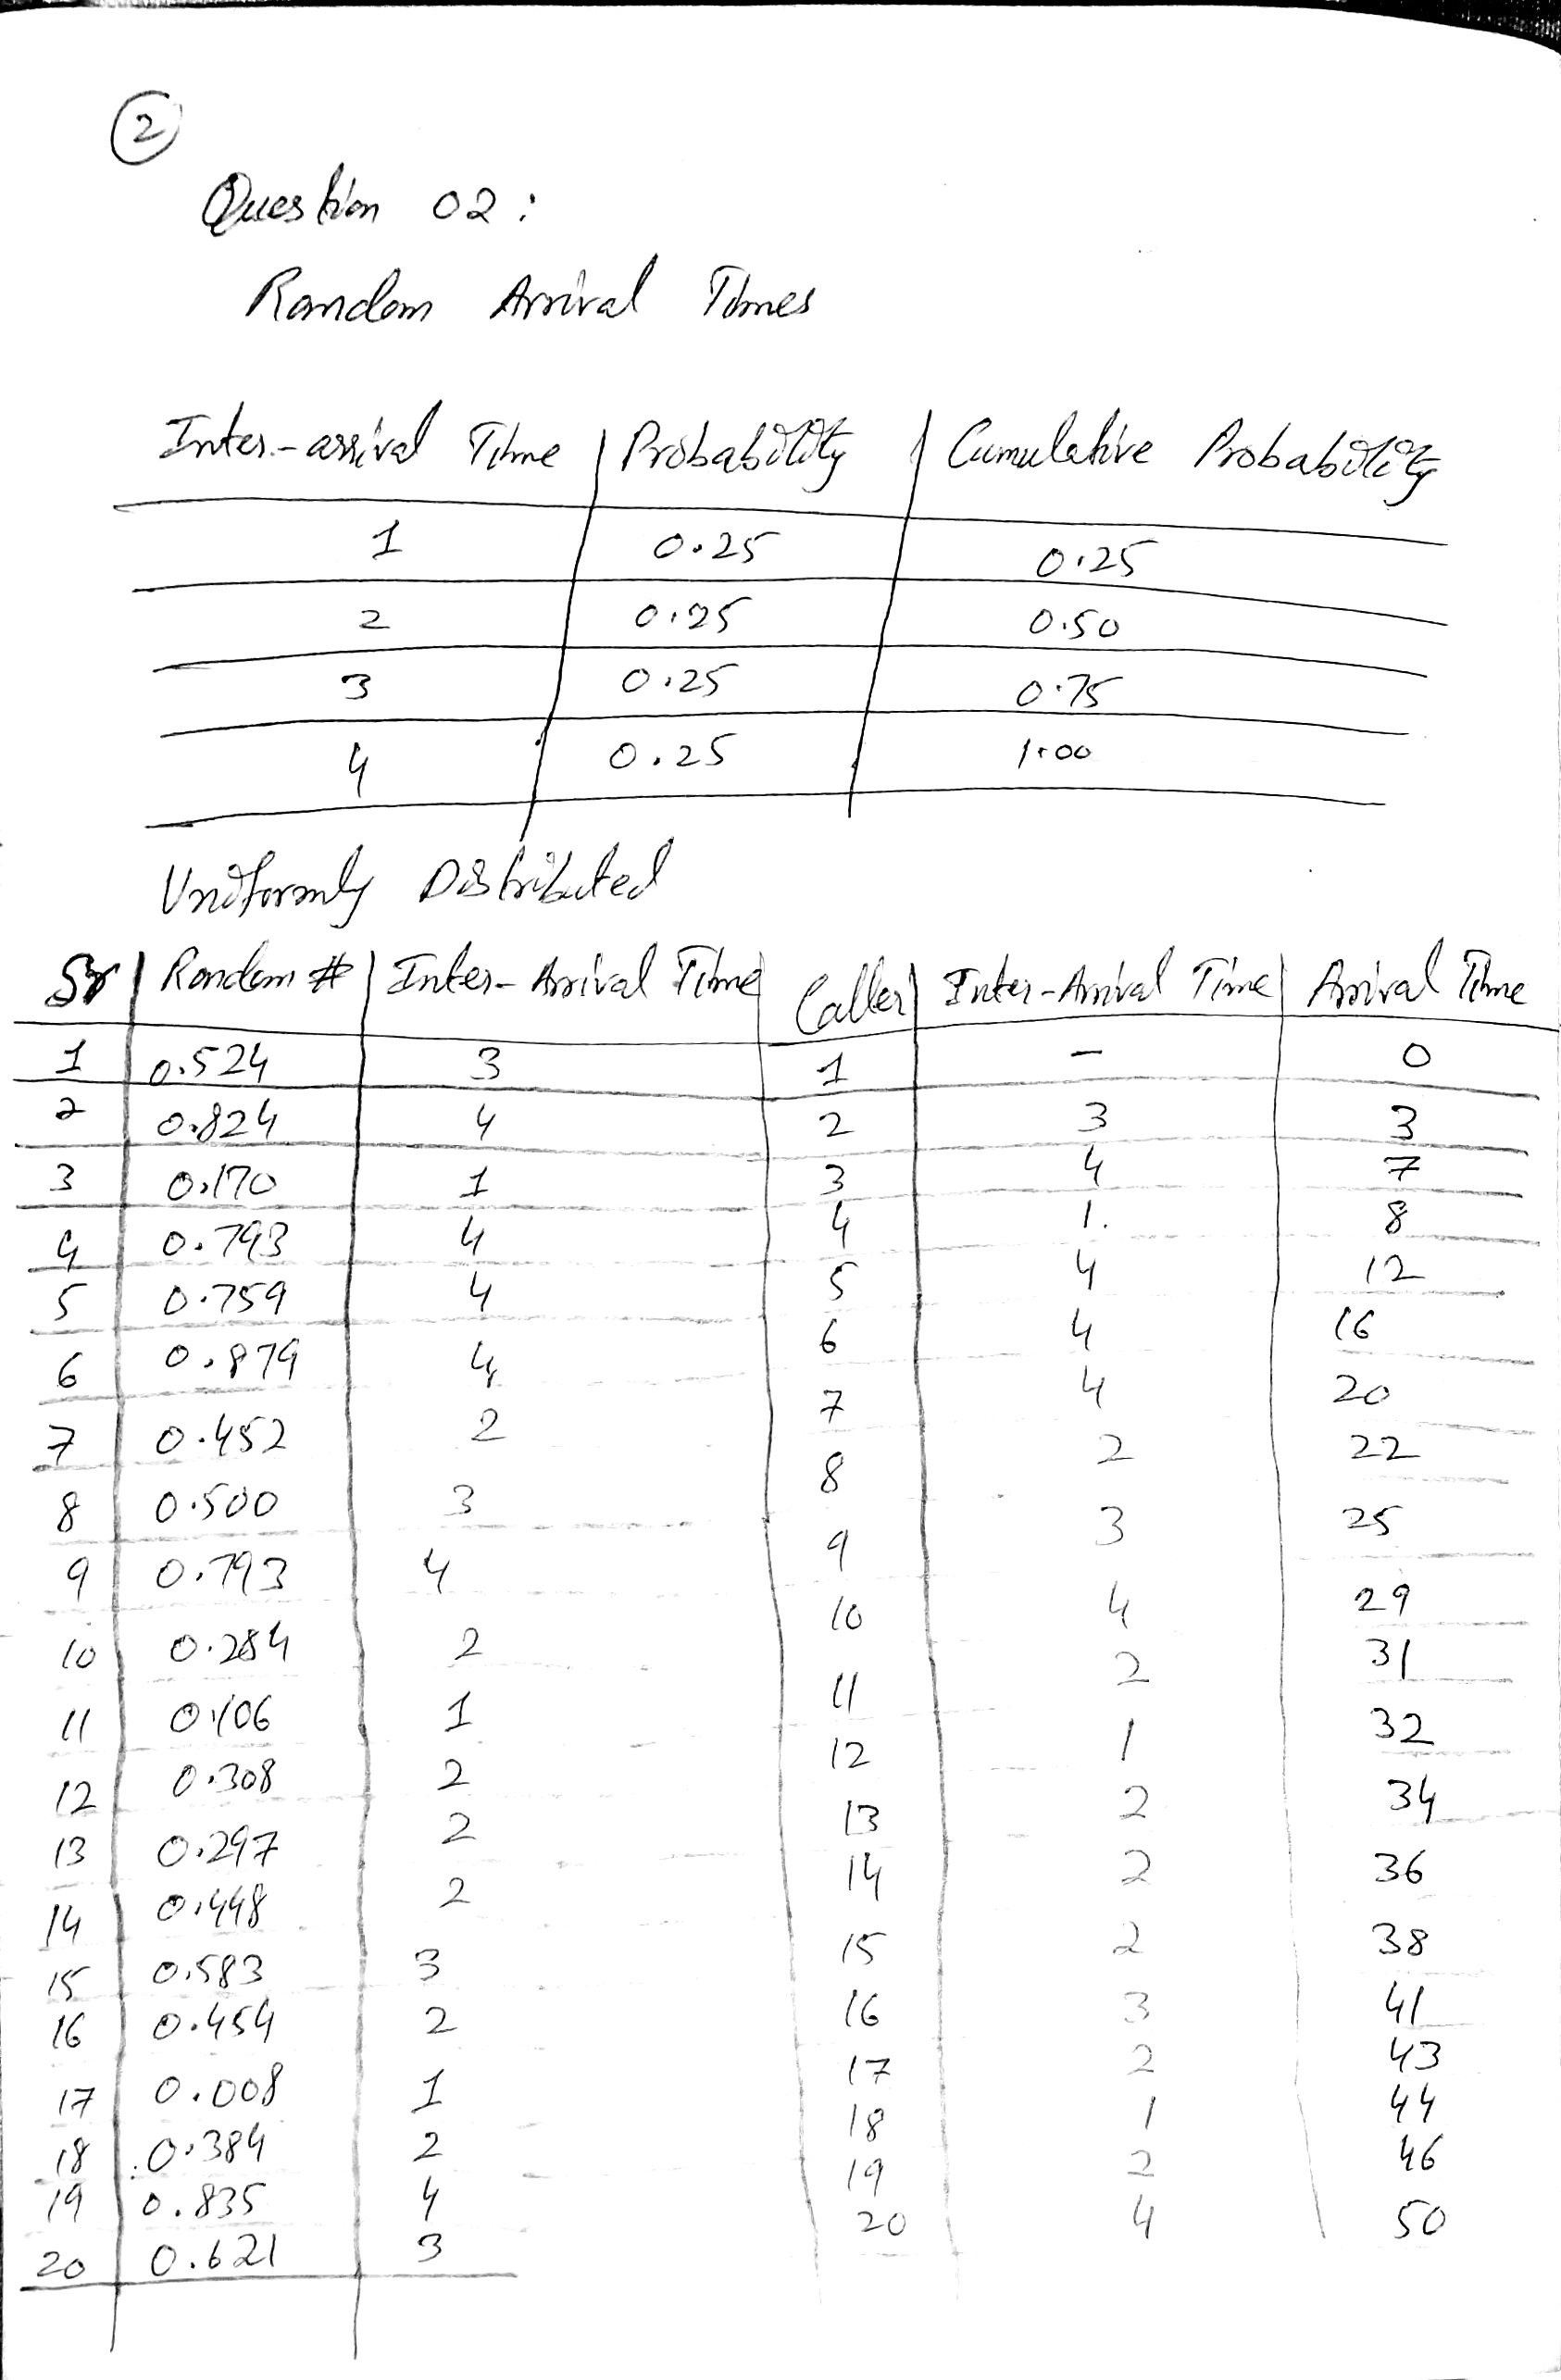 2
Question 02:
Random Arrival Times
Inter-arrival Time | Probability | Cumulative Probability
1 | 0.25 | 0.25
2 | 0.25 | 0.50
3 | 0.25 | 0.75
4 | 0.25 | 1.00
Uniformly Distributed
Sr | Random # | Inter-Arrival Time | Caller | Inter-Arrival Time | Arrival Time
1 | 0.524 | 3 | 1 | - | 0
2 | 0.824 | 4 | 2 | 3 | 3
3 | 0.170 | 1 | 3 | 4 | 7
4 | 0.793 | 4 | 4 | 1. | 8
5 | 0.759 | 4 | 5 | 4 | 12
6 | 0.879 | 4 | 6 | 4 | 16
7 | 0.452 | 2 | 7 | 4 | 20
8 | 0.500 | 3 | 8 | 2 | 22
9 | 0.793 | 4 | 9 | 3 | 25
10 | 0.284 | 2 | 10 | 4 | 29
11 | 0.106 | 1 | 11 | 2 | 31
12 | 0.308 | 2 | 12 | 1 | 32
13 | 0.297 | 2 | 13 | 2 | 34
14 | 0.448 | 2 | 14 | 2 | 36
15 | 0.583 | 3 | 15 | 2 | 38
16 | 0.454 | 2 | 16 | 3 | 41
17 | 0.008 | 1 | 17 | 2 | 43
18 | 0.384 | 2 | 18 | 1 | 44
19 | 0.835 | 4 | 19 | 2 | 46
20 | 0.621 | 3 | 20 | 4 | 50